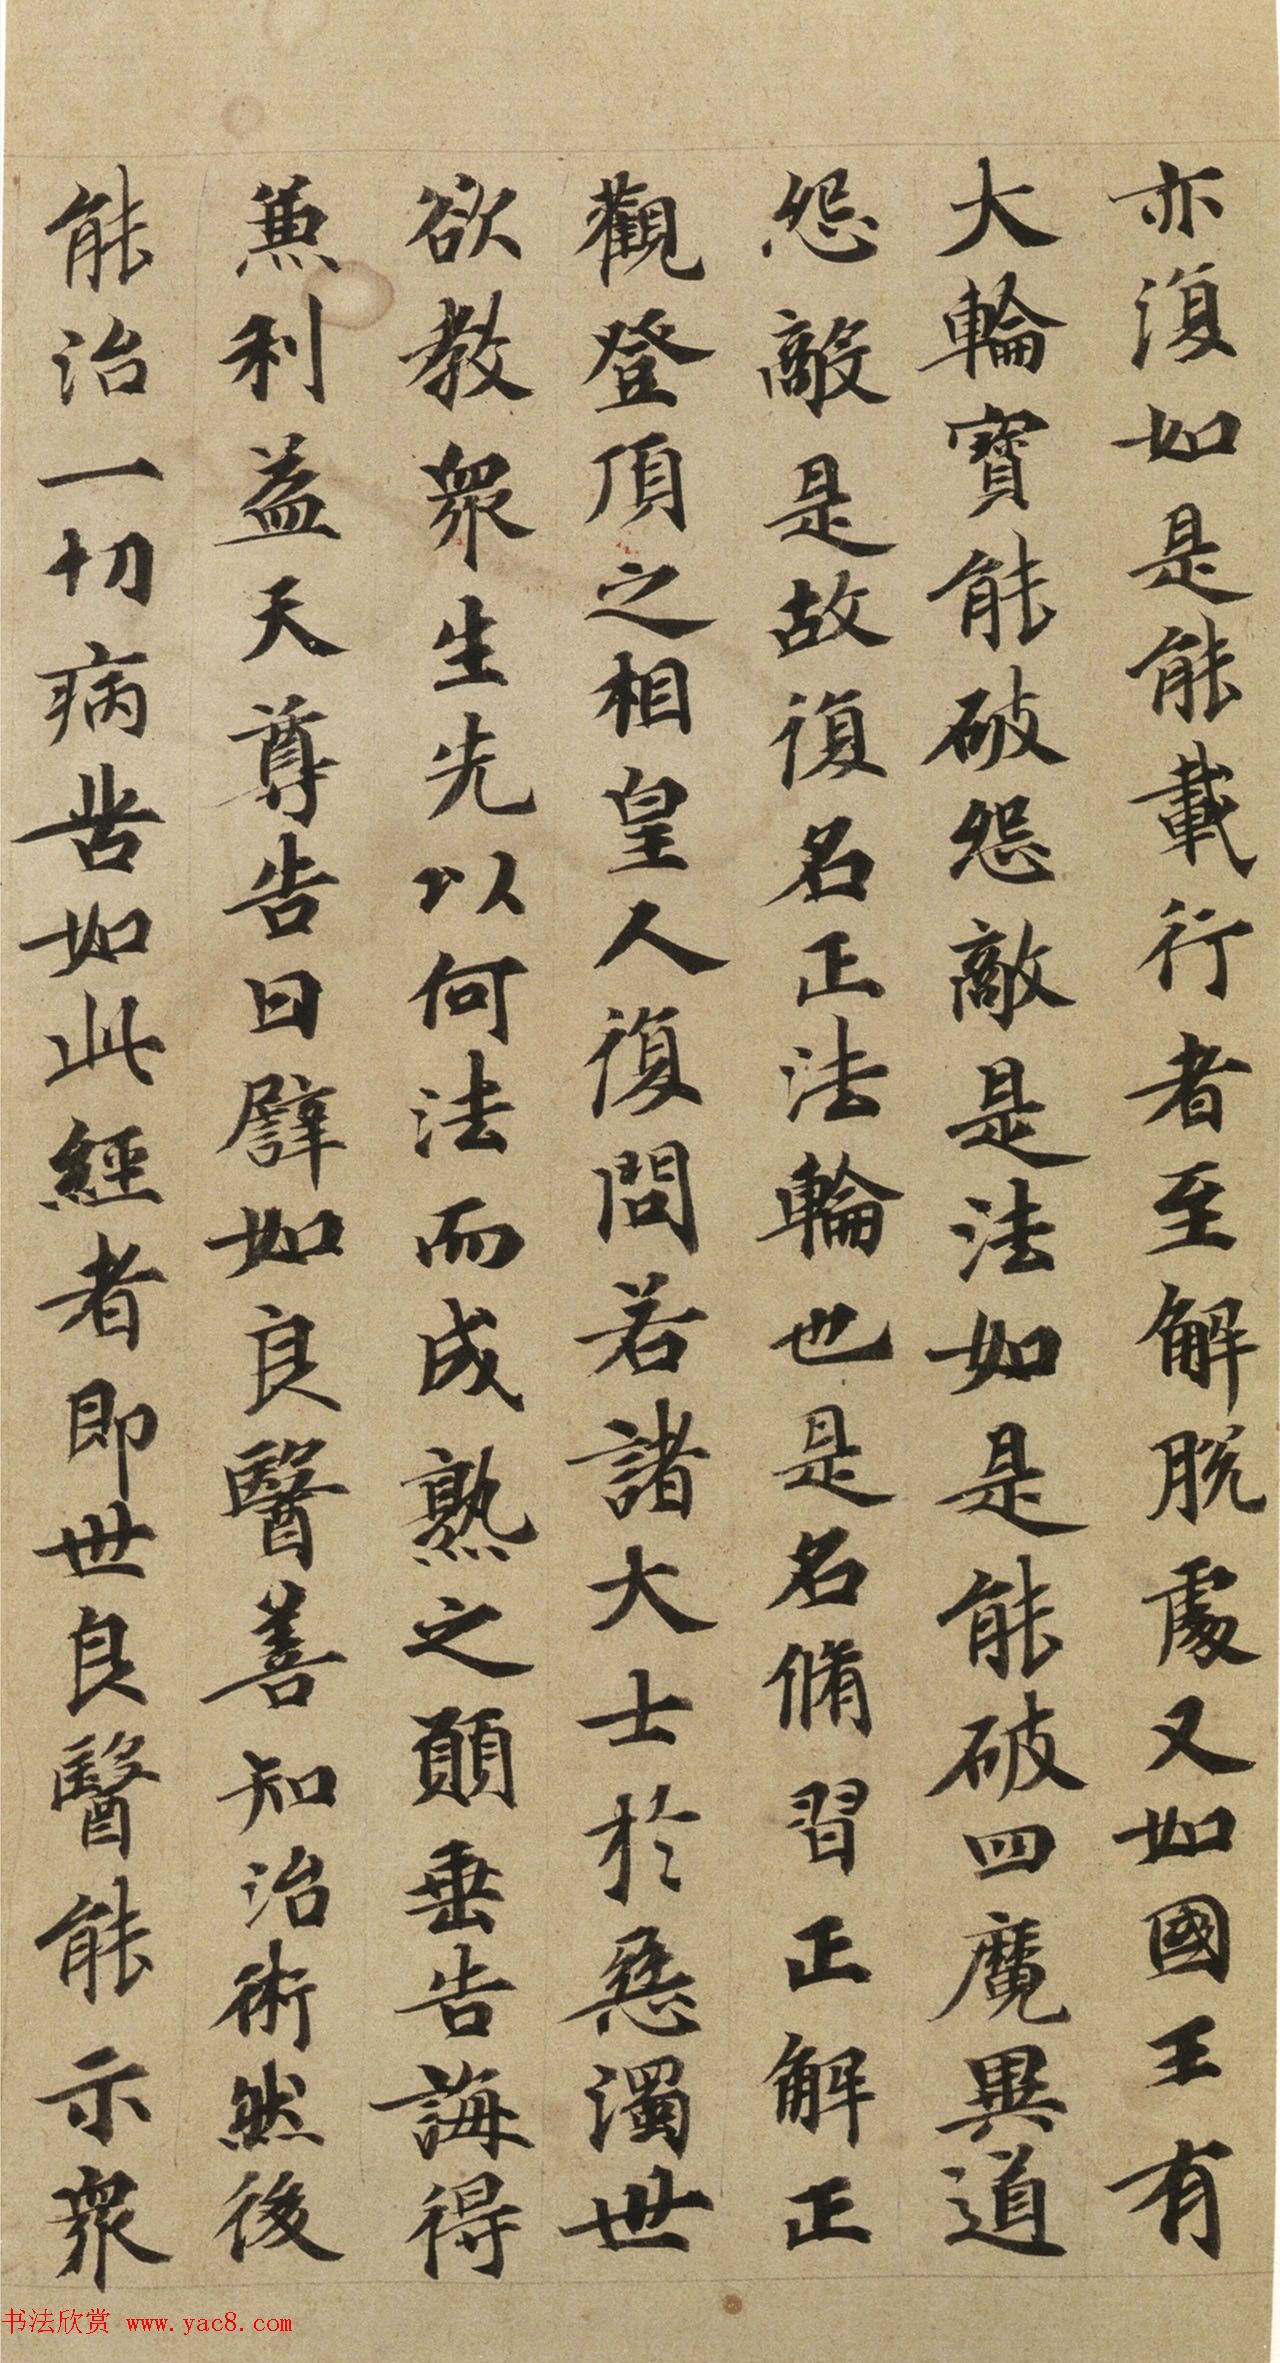 亦復如是能載行者至解脫處又如國王有
大輪寶能破怨敵是法如是能破四魔異道
怨敵是故復名正法輪也是名脩習正解正
觀登頂之相皇人復問若諸大士於惡濁世
欲教眾生先以何法而成熟之願垂告誨得
兼利益天尊告曰譬如良醫善知治術然後
能治一切病苦如此經者即世良醫能示眾
书法欣赏 www.yac8.com